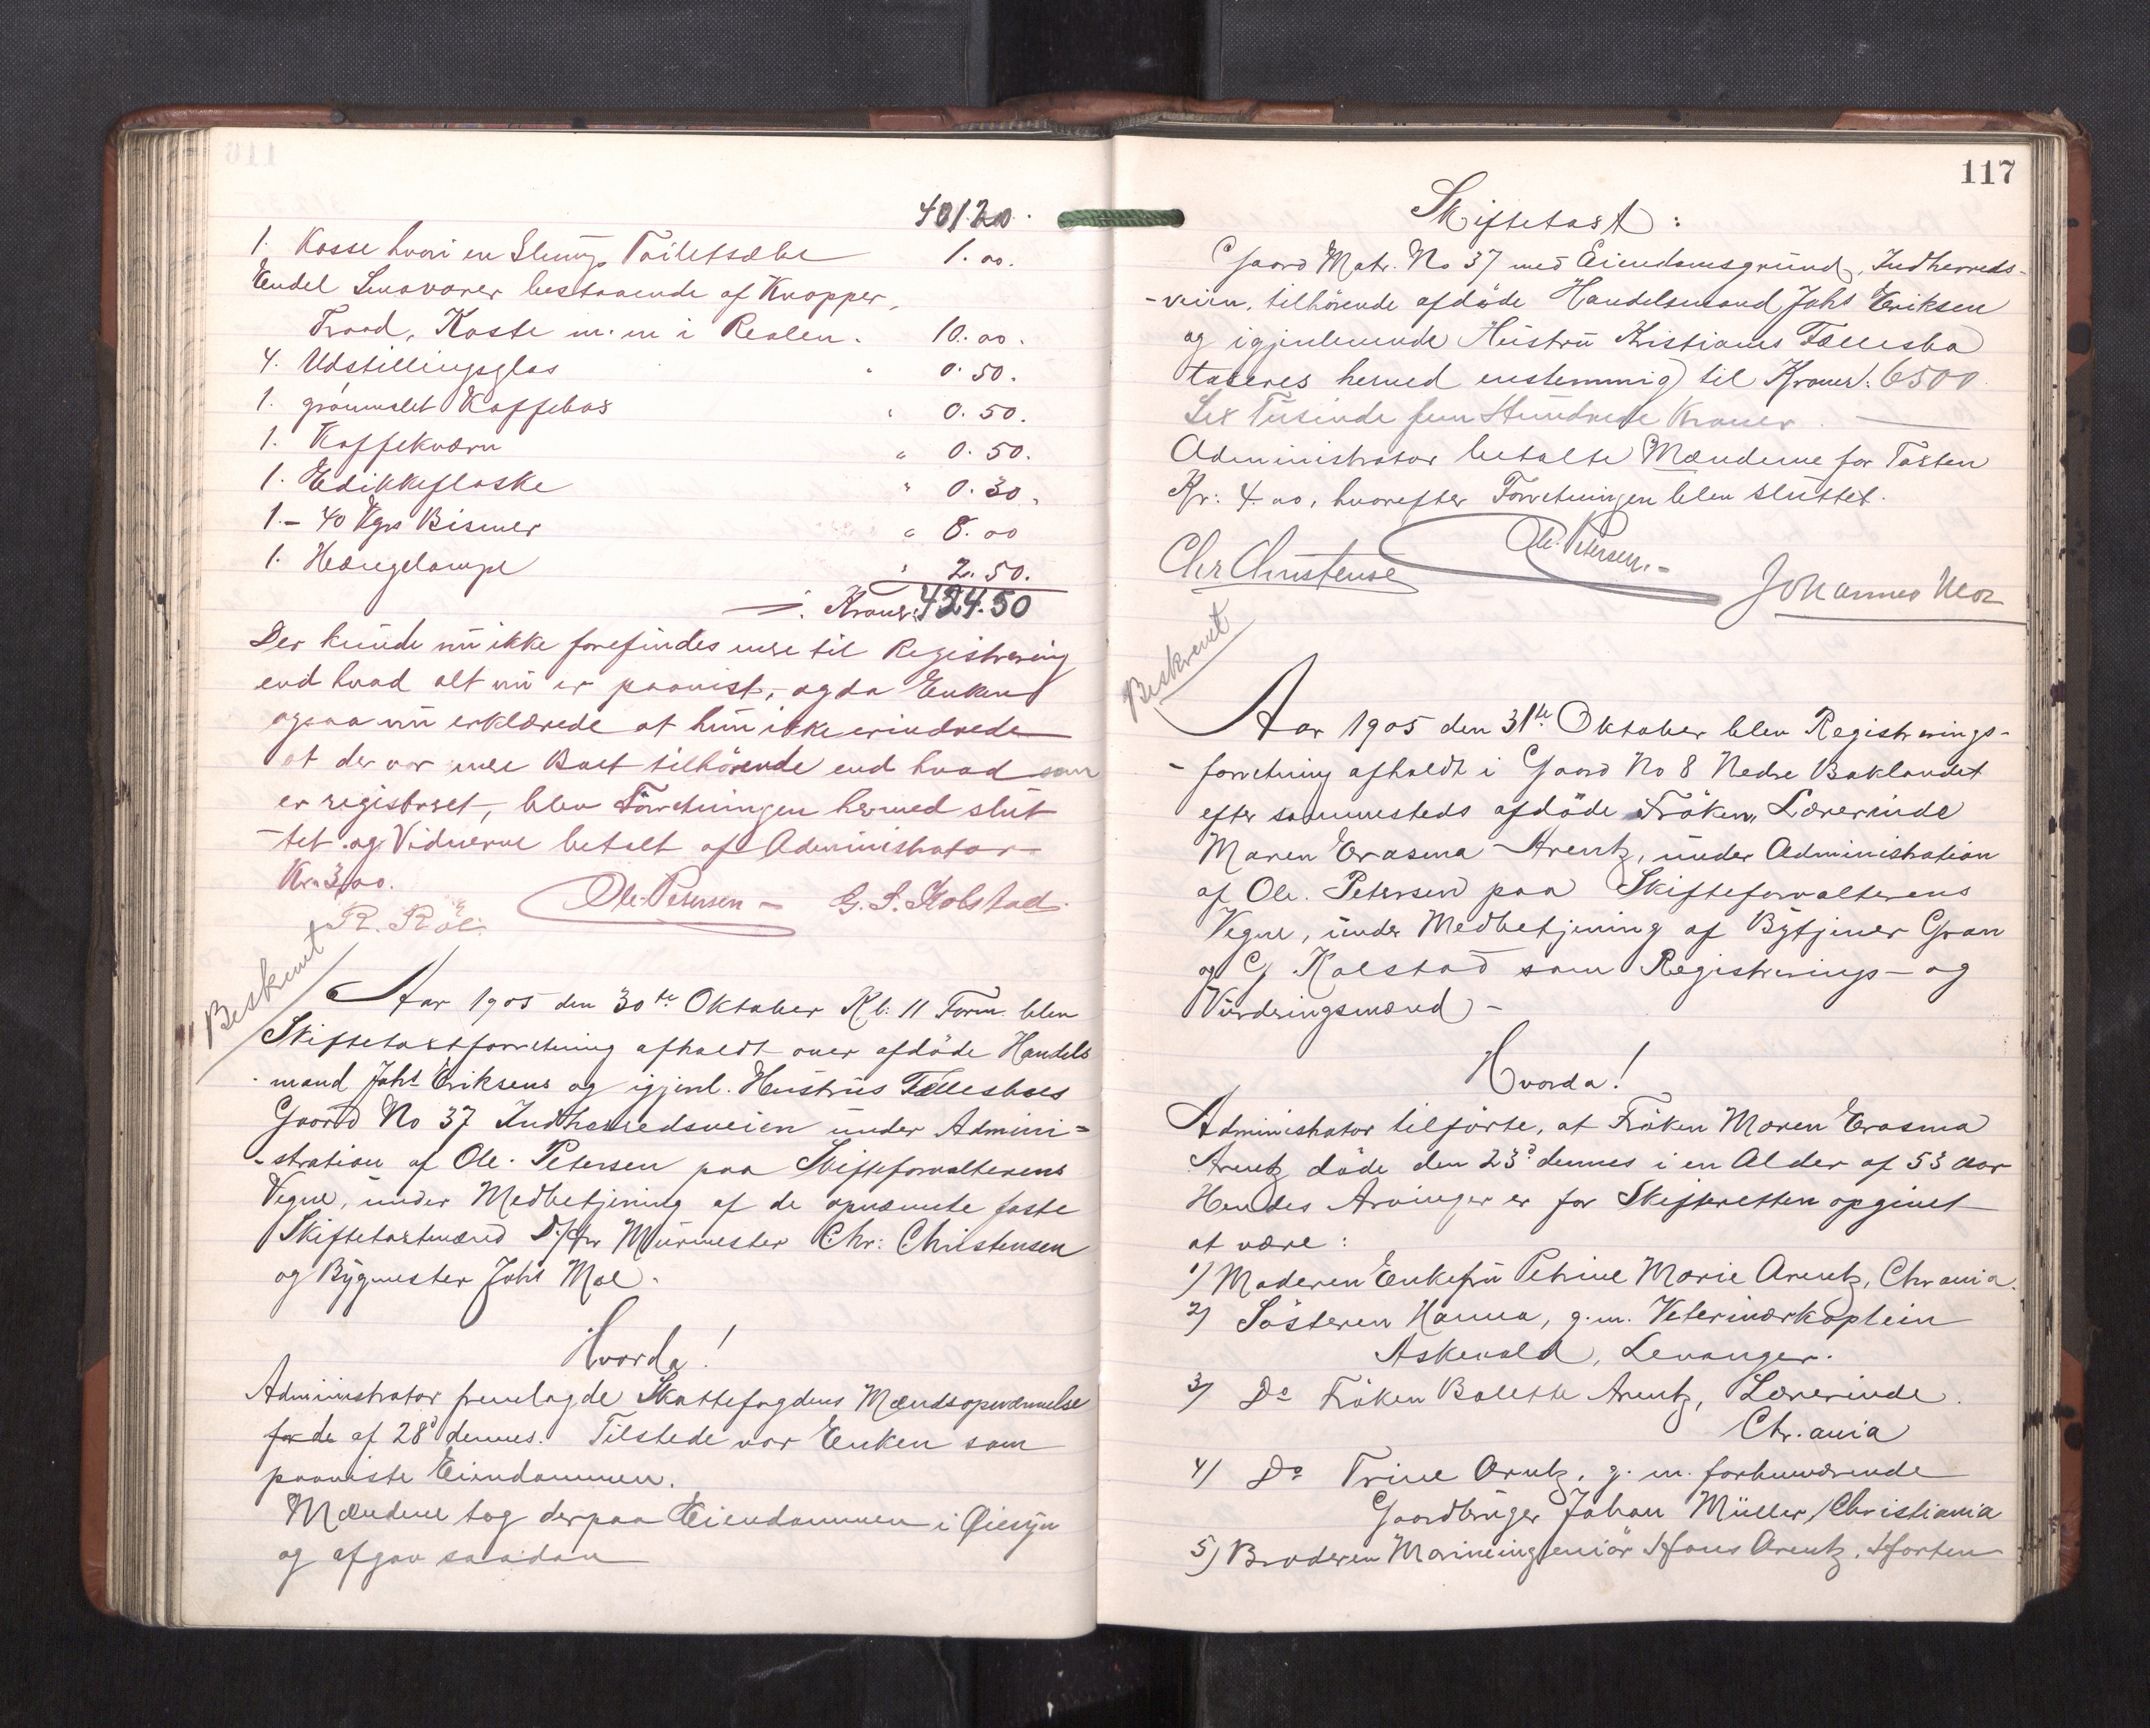 401.20.
1. Kasse hvori en Slump Toiletsæbe 1.00.
Endel Smavarer bestaaende af Knapper,
Traad, Koste m.m i Reolen. 10.00.
4. Udstillingsglas " 0.50.
1. grönmalet Kaffebas " 0.50.
1. Kaffekværn " 0.50.
1. Edikkeflaske " 0.30.
1.– 40 Kgrs Bismer " 8.00
1. Hængelampe " 2.50.
Kroner: 424.50
Der kunde nu ikke forefindes mere til Registrering
end hvad alt nu er paavist, og da Enken
ogsaa nu erklærede at hun ikke erindrede
at der var mere Boet tilhörende end hvad som
er registreret, blev Forretningen hermed slut
-tet og Vidnerne betalt af Administrator
Kr. 3,00.
Ole Petersen – G. S. Kolstad.
R. Röe.
Beskrevet
Aar 1905 den 30te Oktober Kl: 11 Form. blev
Skiftetaxtforretning afholdt over afdöde Handels
-mand Johs Eriksens og igjenl. Hustrus Fællesboes
Gaard No 37 Indherredsveien under Admini=
-stration af Ole Petersen paa Skifteforvalterens
Vegne, under Medbetjening af de opnævnte faste
Skiftetaxtmænd D'Hr Murmester Chr: Christensen
og Bygmester Johs Moe.
Hvorda!
Administrator fremlagde Skattefogdens Mændsopnævnelse
for de af 28d dennes. Tilstede var Enken som
paaviste Eiendommen.
Mændene tog derpaa Eiendommen i Øiesyn
og afgav saadan
117
Skiftetaxt:
Gaard Matr. No 37 med Eiendomsgrund, Indherreds-
-veien, tilhörende afdöde Handelsmand Johs Eriksen
og igjenlevende Hustru Kristianes Fællesbo
taxeres herved enstemmig til Kroner: 6500
Sex Tusinde fem Hundrede Kroner.
Administrator betalte Mændene for Taxten
Kr: 4.00, hvorefter Forretningen blev sluttet.
Chr Christensen
Ole Petersen.–
Johannes Moe
Beskrevet
Aar 1905 den 31te Oktober blev Registrerings-
-forretning afholdt i Gaard No 8 Nedre Baklandet
efter sammesteds afdöde Fröken, Lærerinde
Maren Erasma Arentz, under Administration
af Ole. Petersen paa Skifteforvalterens
Vegne, under Medbetjening af Bytjener Gran
og G Kolstad som Registrerings- og
Vurderingsmænd –
Hvorda!
Administrator tilförte, at Fröken Maren Erasma
Arentz döde den 23d dennes i en Alder af 53 Aar
Hendes Arvinger er for Skifteretten opgivet
at være:
1) Moderen Enkefru Petrine Marie Arentz, Chr.ania.
2) Sösteren Hanna, g.m. Veterinærkaptein
Askevold, Levanger.
3) Do Fröken Bolette Arentz, Lærerinde.
Chr.ania
4) Do Trine Arentz, g. m. forhenværende
Gaardbruger Johan Müller, Christiania
5) Broderen Marineingeniör Hans Arentz, Horten